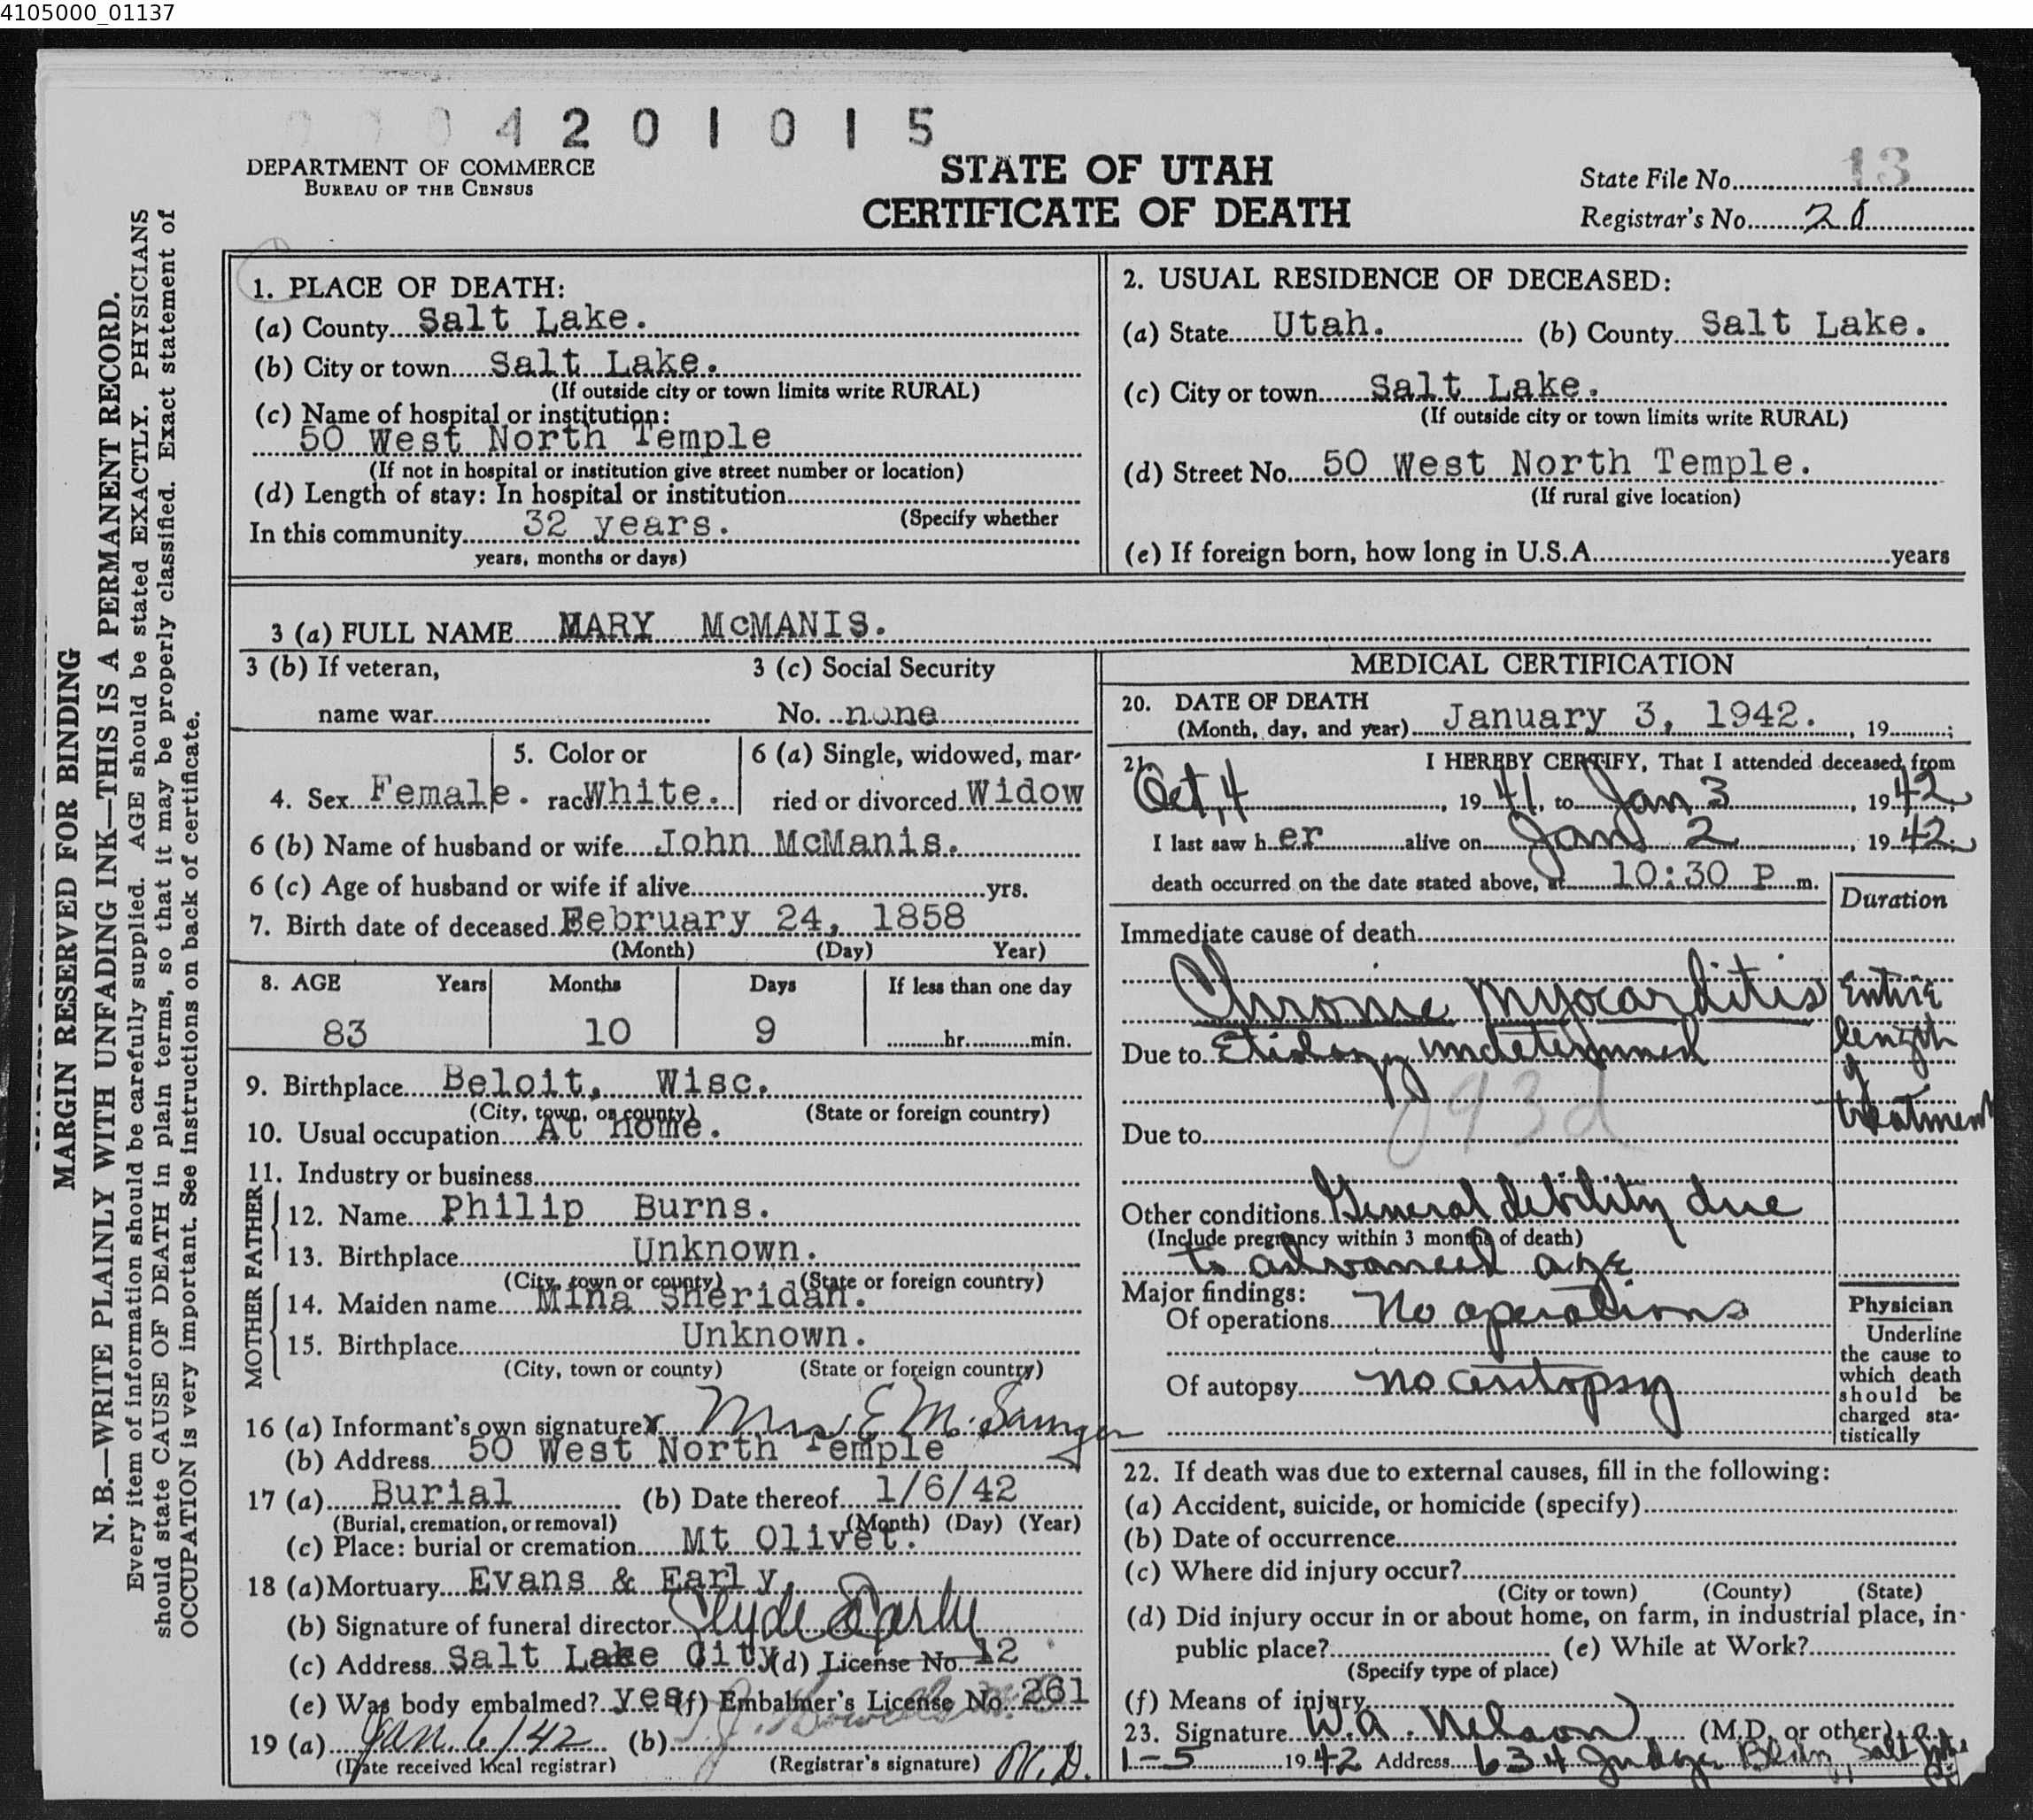 4105000_01137
0004201015
DEPARTMENT OF COMMERCE
BUREAU OF THE CENSUS
STATE OF UTAH
CERTIFICATE OF DEATH
State File No. 13
Registrar's No. 20
MARGIN RESERVED FOR BINDING
N. B.—WRITE PLAINLY WITH UNFADING INK—THIS IS A PERMANENT RECORD.
Every item of information should be carefully supplied. AGE should be stated EXACTLY. PHYSICIANS
should state CAUSE OF DEATH in plain terms, so that it may be properly classified. Exact statement of
OCCUPATION is very important. See instructions on back of certificate.
1. PLACE OF DEATH:
(a) County Salt Lake.
(b) City or town Salt Lake.
(If outside city or town limits write RURAL)
(c) Name of hospital or institution:
50 West North Temple
(If not in hospital or institution give street number or location)
(d) Length of stay: In hospital or institution
(Specify whether
In this community 32 years.
years, months or days)
2. USUAL RESIDENCE OF DECEASED:
(a) State Utah. (b) County Salt Lake.
(c) City or town Salt Lake.
(If outside city or town limits write RURAL)
(d) Street No. 50 West North Temple.
(If rural give location)
(e) If foreign born, how long in U.S.A. years
3 (a) FULL NAME MARY McMANIS.
3 (b) If veteran,
name war
3 (c) Social Security
No. none
4. Sex Female.
5. Color or
race White.
6 (a) Single, widowed, mar-
ried or divorced Widow
6 (b) Name of husband or wife John McManis.
6 (c) Age of husband or wife if alive yrs.
7. Birth date of deceased February 24, 1858
(Month) (Day) Year)
8. AGE Years Months Days If less than one day
83 10 9 hr. min.
9. Birthplace Beloit, Wisc.
(City, town, or county) (State or foreign country)
10. Usual occupation At home.
11. Industry or business
FATHER
12. Name Philip Burns.
13. Birthplace Unknown.
(City, town or county) (State or foreign country)
MOTHER
14. Maiden name Mina Sheridan.
15. Birthplace Unknown.
(City, town or county) (State or foreign country)
16 (a) Informant's own signature x Mrs E. M.
(b) Address 50 West North Temple
17 (a) Burial (b) Date thereof 1/6/42
(Burial, cremation, or removal) (Month) (Day) (Year)
(c) Place: burial or cremation Mt Olivet.
18 (a) Mortuary Evans & Early,
(b) Signature of funeral director Clyde Early
(c) Address Salt Lake City (d) License No. 12
(e) Was body embalmed? yes (f) Embalmer's License No. 261
19 (a) Jan. 6/42 (b)
(Date received local registrar) (Registrar's signature) M.D.
MEDICAL CERTIFICATION
20. DATE OF DEATH
(Month, day, and year) January 3, 1942. , 19 ;
21. I HEREBY CERTIFY, That I attended deceased from
Oct, 4, 19 41, to Jan 3, 19 42,
I last saw h er alive on Jan 2, 19 42.
death occurred on the date stated above, at 10:30 P m.
Duration
Immediate cause of death
Chronic Myocarditis
Entire
length
of
treatment
Due to Etiology undetermined
93d
Due to
Other conditions General debility due
(Include pregnancy within 3 months of death)
to advanced age
Major findings:
Of operations No operations
Of autopsy no autopsy
Physician
Underline
the cause to
which death
should be
charged sta-
tistically
22. If death was due to external causes, fill in the following:
(a) Accident, suicide, or homicide (specify)
(b) Date of occurrence
(c) Where did injury occur?
(City or town) (County) (State)
(d) Did injury occur in or about home, on farm, in industrial place, in
public place? (e) While at Work?
(Specify type of place)
(f) Means of injury
23. Signature W. A. Nelson (M.D. or other)
1-5 19 42 Address 634 Judge Bldn Salt Lake City